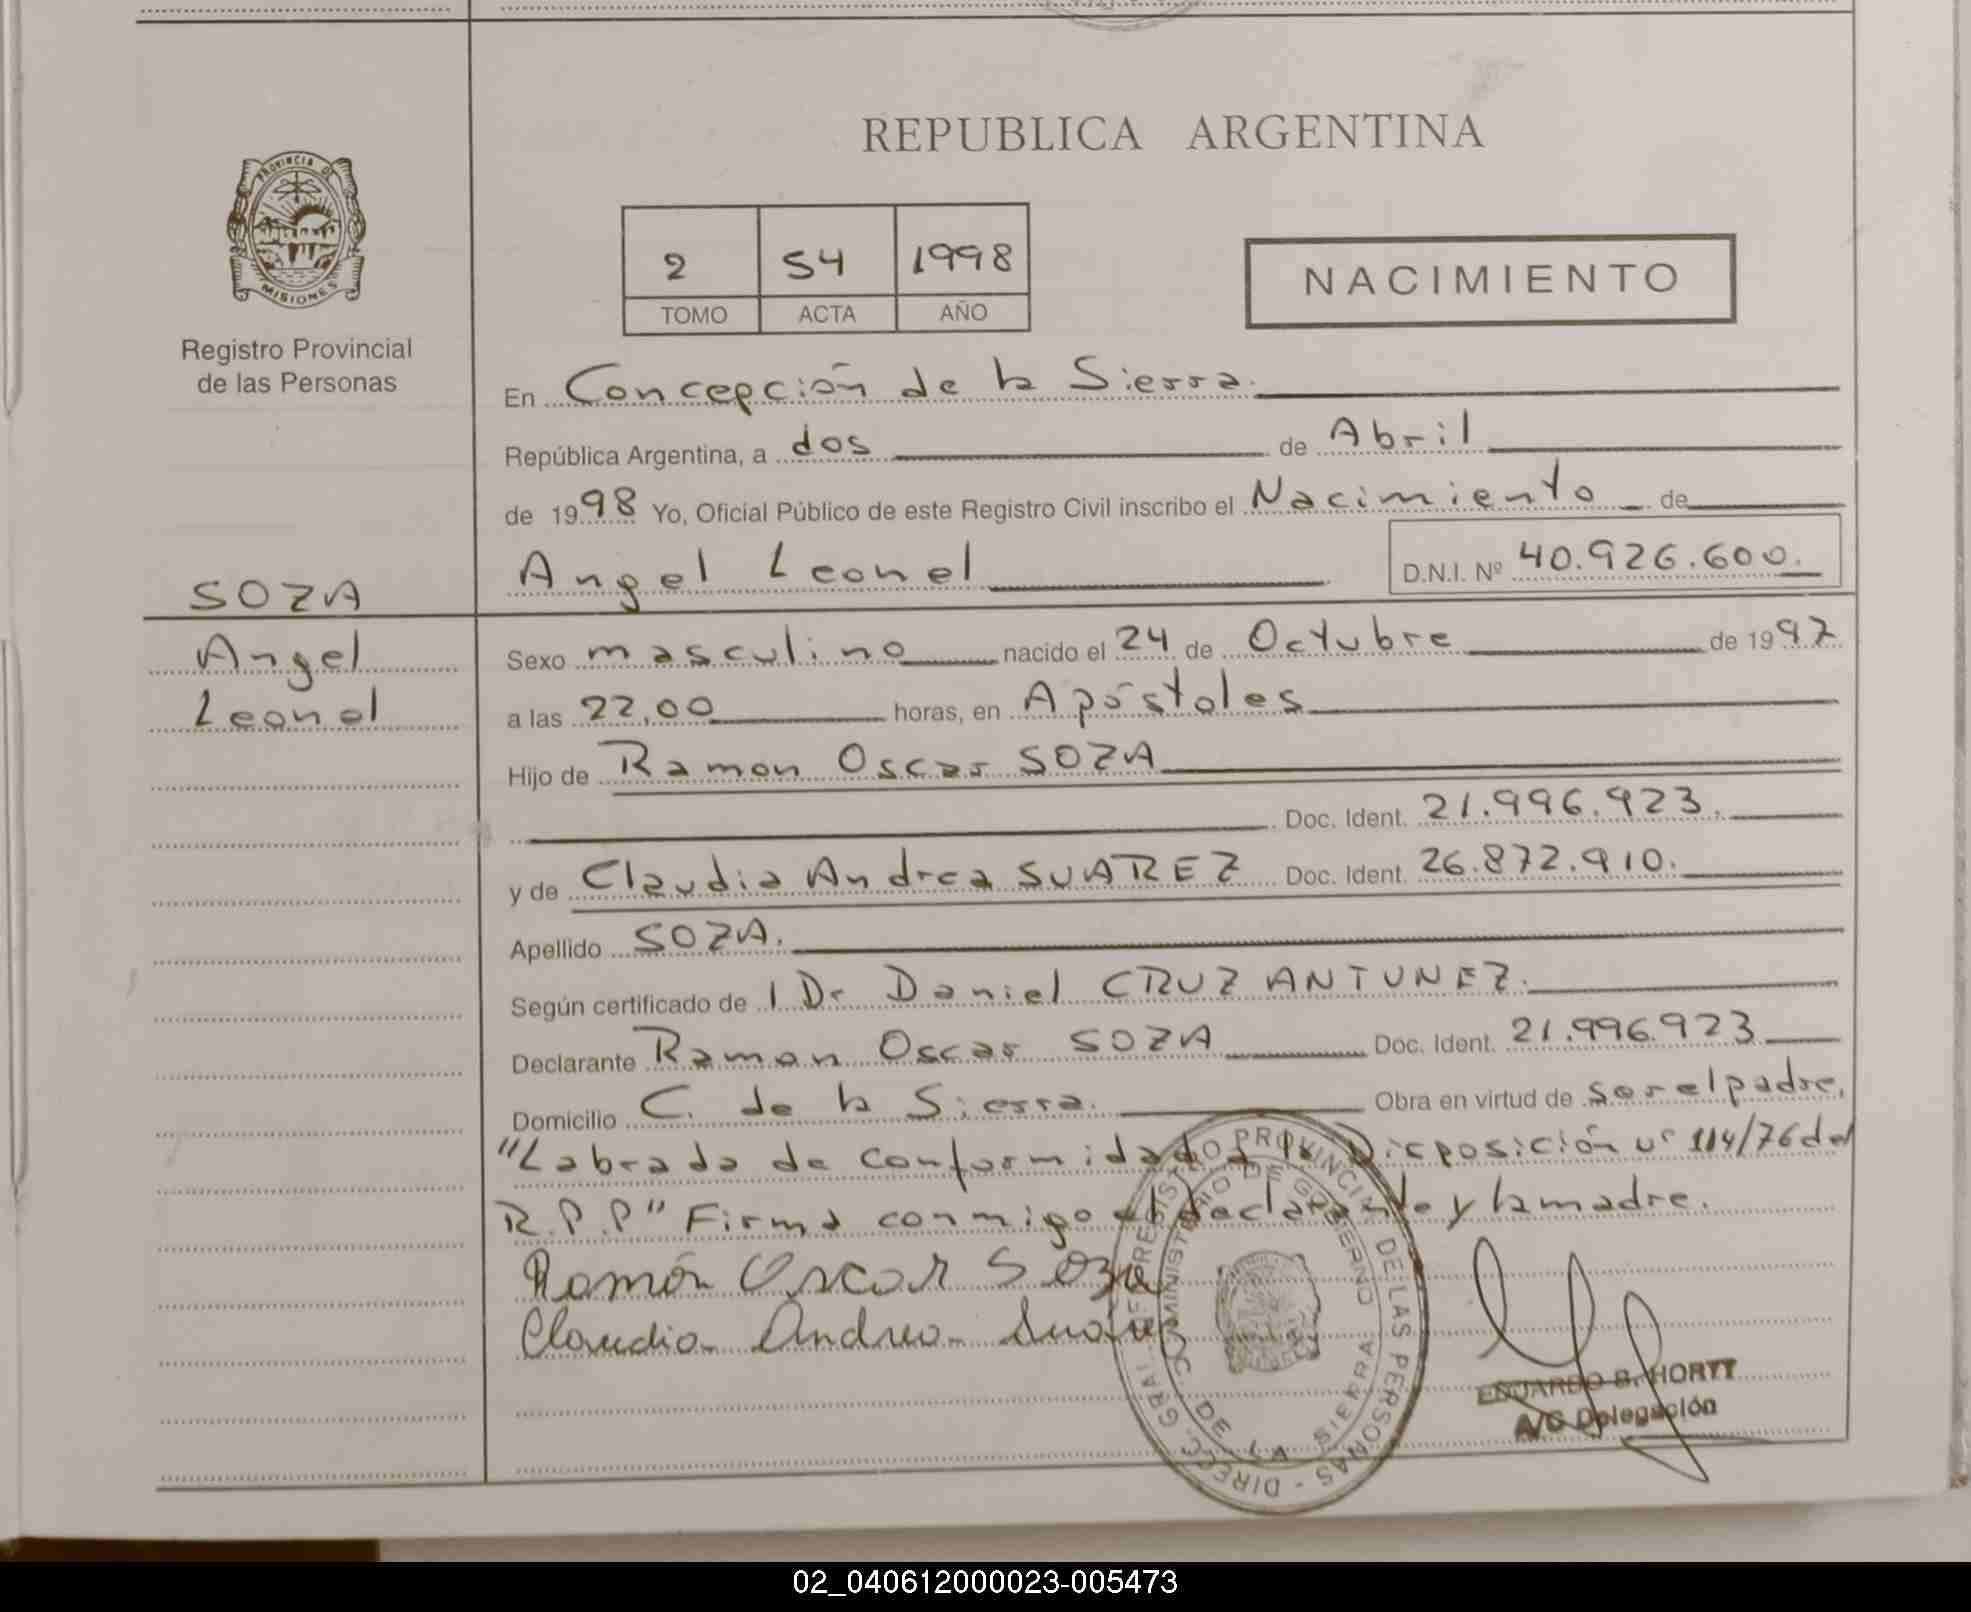 REPUBLICA ARGENTINA
PROVINCIA DE
MISIONES
Registro Provincial
de las Personas
2 54 1998
TOMO ACTA AÑO
NACIMIENTO
En Concepción de la Sierra.
República Argentina, a dos de Abril
de 1998 Yo, Oficial Público de este Registro Civil inscribo el Nacimiento de
Angel Leonel D.N.I. Nº 40.926.600.
SOZA
Angel
Leonel
Sexo masculino nacido el 24 de Octubre de 1997
a las 22,00 horas, en Apóstoles
Hijo de Ramon Oscar SOZA
Doc. Ident. 21.996.923.
y de Claudia Andrea SUAREZ Doc. Ident. 26.872.910.
Apellido SOZA.
Según certificado de l Dr Daniel CRUZ ANTUNEZ.
Declarante Ramon Oscar SOZA Doc. Ident. 21.996.923
Domicilio C. de la Sierra. Obra en virtud de ser el padre.
"Labrada de conformidad a la Disposición nº 114/76 del
R.P.P" Firma conmigo el declarante y la madre.
Ramón Oscar Soza
Claudia Andrea Suárez
DIRECC. GRAL. DE REGISTRO PROVINCIAL DE LAS PERSONAS
MINISTERIO DE GOBIERNO
C. DE LA SIERRA
EDUARDO B. HORTT
A/C Delegación
02_040612000023-005473